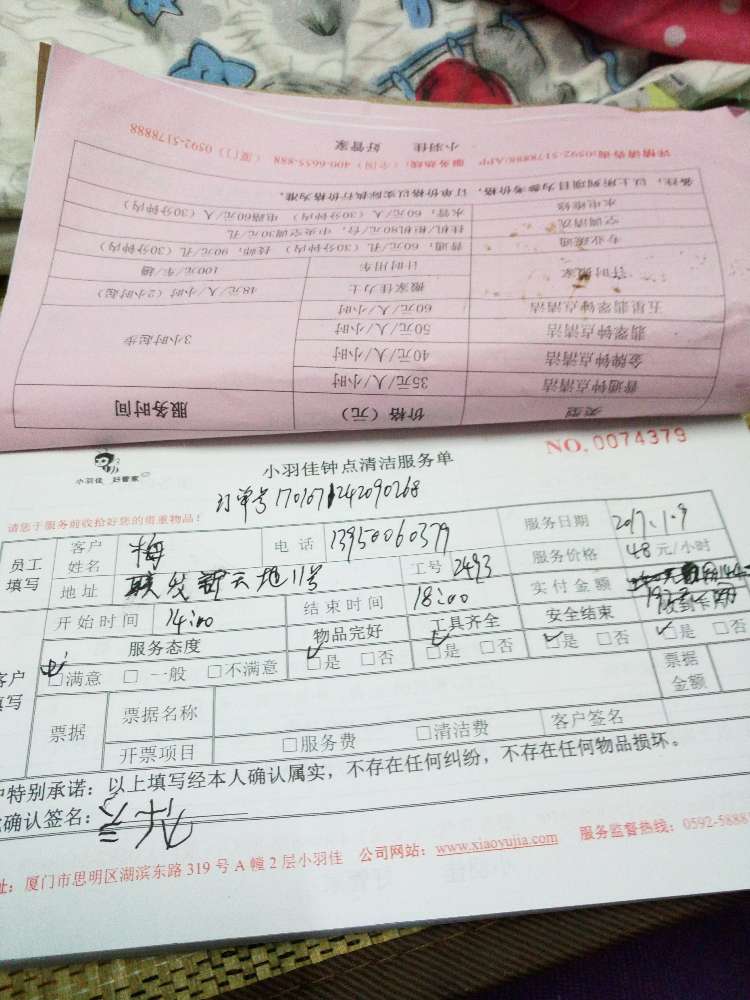 详情请咨询:0592-5178888/APP 服务热线:（全国）400-6655-888 （厦门）0592-5178888
小羽佳 好管家
备注：以上所列项目为参考价格，订单价格以实际执行价格为准。
水电维修 水管：60元/人（30分钟内） 电路60元/人（30分钟内）
空调清洗 挂机/柜机80元/台，中央空调30元/孔
专业疏通 普通：60元/孔（30分钟内） 技师：90元/孔（30分钟内）
计时搬家 计时用车 100元/车/趟
搬家佳力士 48元/人/小时（2小时起）
五星翡翠钟点清洁 60元/人/小时
翡翠钟点清洁 50元/人/小时 3小时起步
金牌钟点清洁 40元/人/小时
普通钟点清洁 35元/人/小时
类型 价格（元） 服务时间
NO.0074379
小羽佳 好管家
小羽佳钟点清洁服务单
订单号1701071242090268
请您于服务前收拾好您的贵重物品！
员工填写 客户姓名 梅 电话 13950060379 服务日期 2017.1.9
地址 联发新天地11号 工号 2493 服务价格 48元/小时
开始时间 14:00 结束时间 18:00 实付金额
服务态度 物品完好 工具齐全 安全结束
□满意 □一般 □不满意 □是 □否 □是 □否 □是 □否 □是 □否
客户填写 票据 票据名称 票据金额
开票项目 □服务费 □清洁费 客户签名
户特别承诺：以上填写经本人确认属实，不存在任何纠纷，不存在任何物品损坏。
确认签名：
址：厦门市思明区湖滨东路319号A幢2层小羽佳 公司网站：www.xiaoyujia.com 服务监督热线：0592-58881